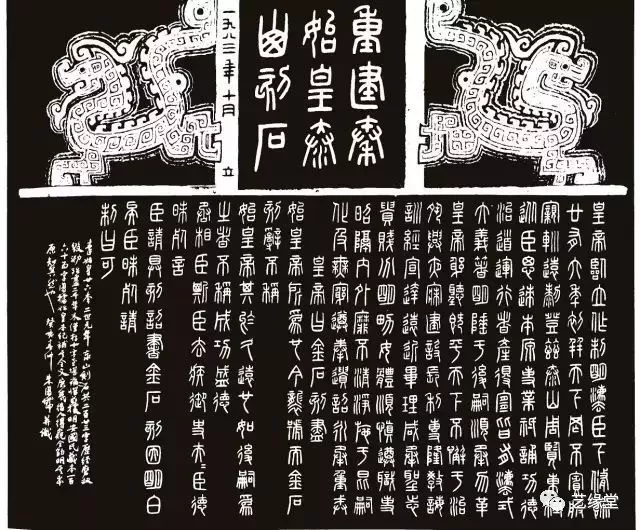 重建秦
始皇泰
山刻石
一九八三年十月 立
皇帝臨立作制明法臣下脩飭
廿有六年初并天下罔不賓服
親巡遠黎登茲泰山周覽東極
從臣思迹本原事業祗誦功德
治道運行者產得宜皆有法式
大義著明陲于後嗣順承勿革
皇帝躬聽既平天下不懈于治
夙興夜寐建設長利專隆教誨
訓經宣達遠近畢理咸承聖志
貴賤分明男女體順慎遵職事
昭隔內外靡不清淨施于昆嗣
化及無窮遵奉遺詔永承重戒
皇帝曰金石刻盡
始皇帝所為也今襲號而金石
刻辭不稱
始皇帝其於久遠也如後嗣為
之者不稱成功盛德
丞相臣斯臣去疾御史大夫臣德
昧死言
臣請具刻詔書金石刻因明白
矣臣昧死請
制曰可
癸亥 朱復戡并識
艺缘堂